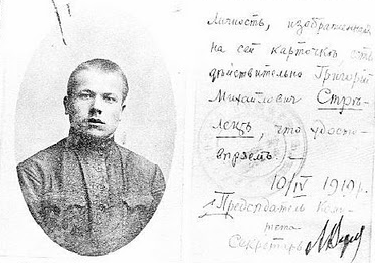 Личность, изображенная
на сей карточке, есть
действительно Григорий
Михайлович Стрѣ-
лецъ, что удосто-
вѣряемъ. —
10/IV 1919 г.
Председатель Коми-
тета
Секретарь